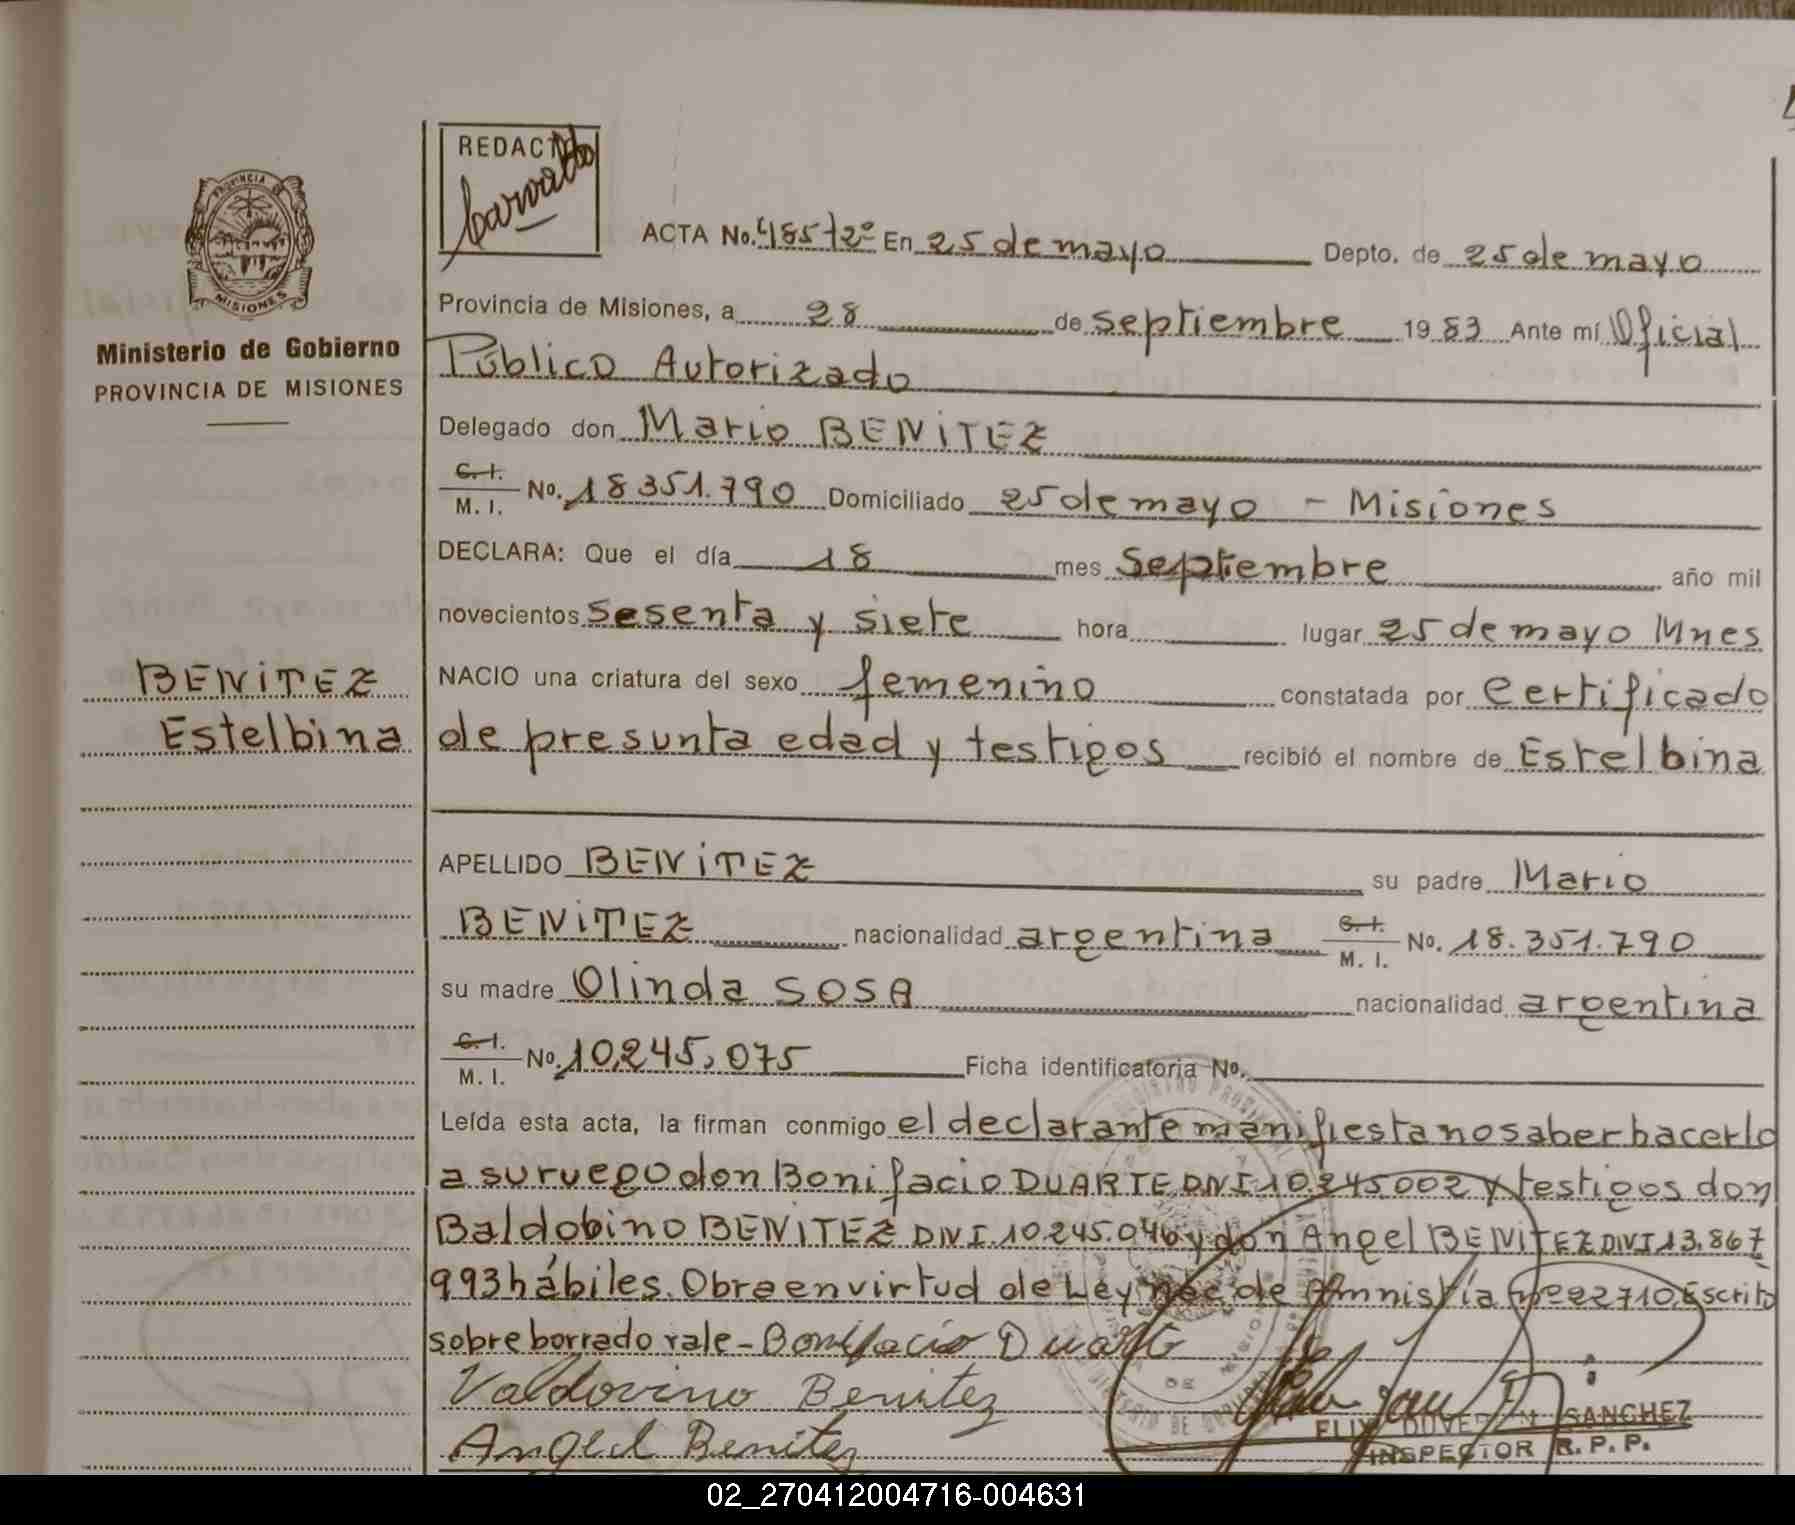 REDACTO
PROVINCIA DE
MISIONES
Ministerio de Gobierno
PROVINCIA DE MISIONES
ACTA No. 485 t 2º En 25 de mayo Depto. de 25 de mayo
Provincia de Misiones, a 28 de septiembre 1983 Ante mí Oficial
Público Autorizado
Delegado don Mario BENITEZ
C. I.
M. I. No. 18351.790 Domiciliado 25 de mayo - Misiones
DECLARA: Que el día 18 mes septiembre año mil
novecientos sesenta y siete hora lugar 25 de mayo Mnes
BENITEZ
Estelbina
NACIO una criatura del sexo femenino constatada por certificado
de presunta edad y testigos recibió el nombre de Estelbina
APELLIDO BENITEZ su padre Mario
BENITEZ nacionalidad argentina C. I.
M. I. No. 18.351.790
su madre Olinda SOSA nacionalidad argentina
C. I.
M. I. No. 10,245,075 Ficha identificatoria No.
Leída esta acta, la firman conmigo el declarante manifiesta no saber hacerlo
a su ruego don Bonifacio DUARTE DNI 10.245.002 y testigos don
Baldobino BENITEZ DNI.10.245.046 y don Angel BENITEZ DNI 13.867
993 hábiles. Obra en virtud de Ley de Amnistía nº 22710. Escrito
sobre borrado vale - Bonifacio Duarte
Valdovino Benitez
Angel Benitez
SANCHEZ
INSPECTOR R. P. P.
02_270412004716-004631